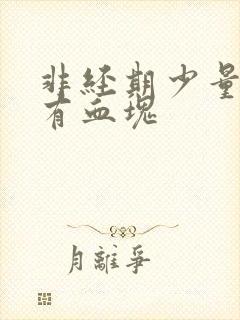 非经期少量
有血塊
月離爭